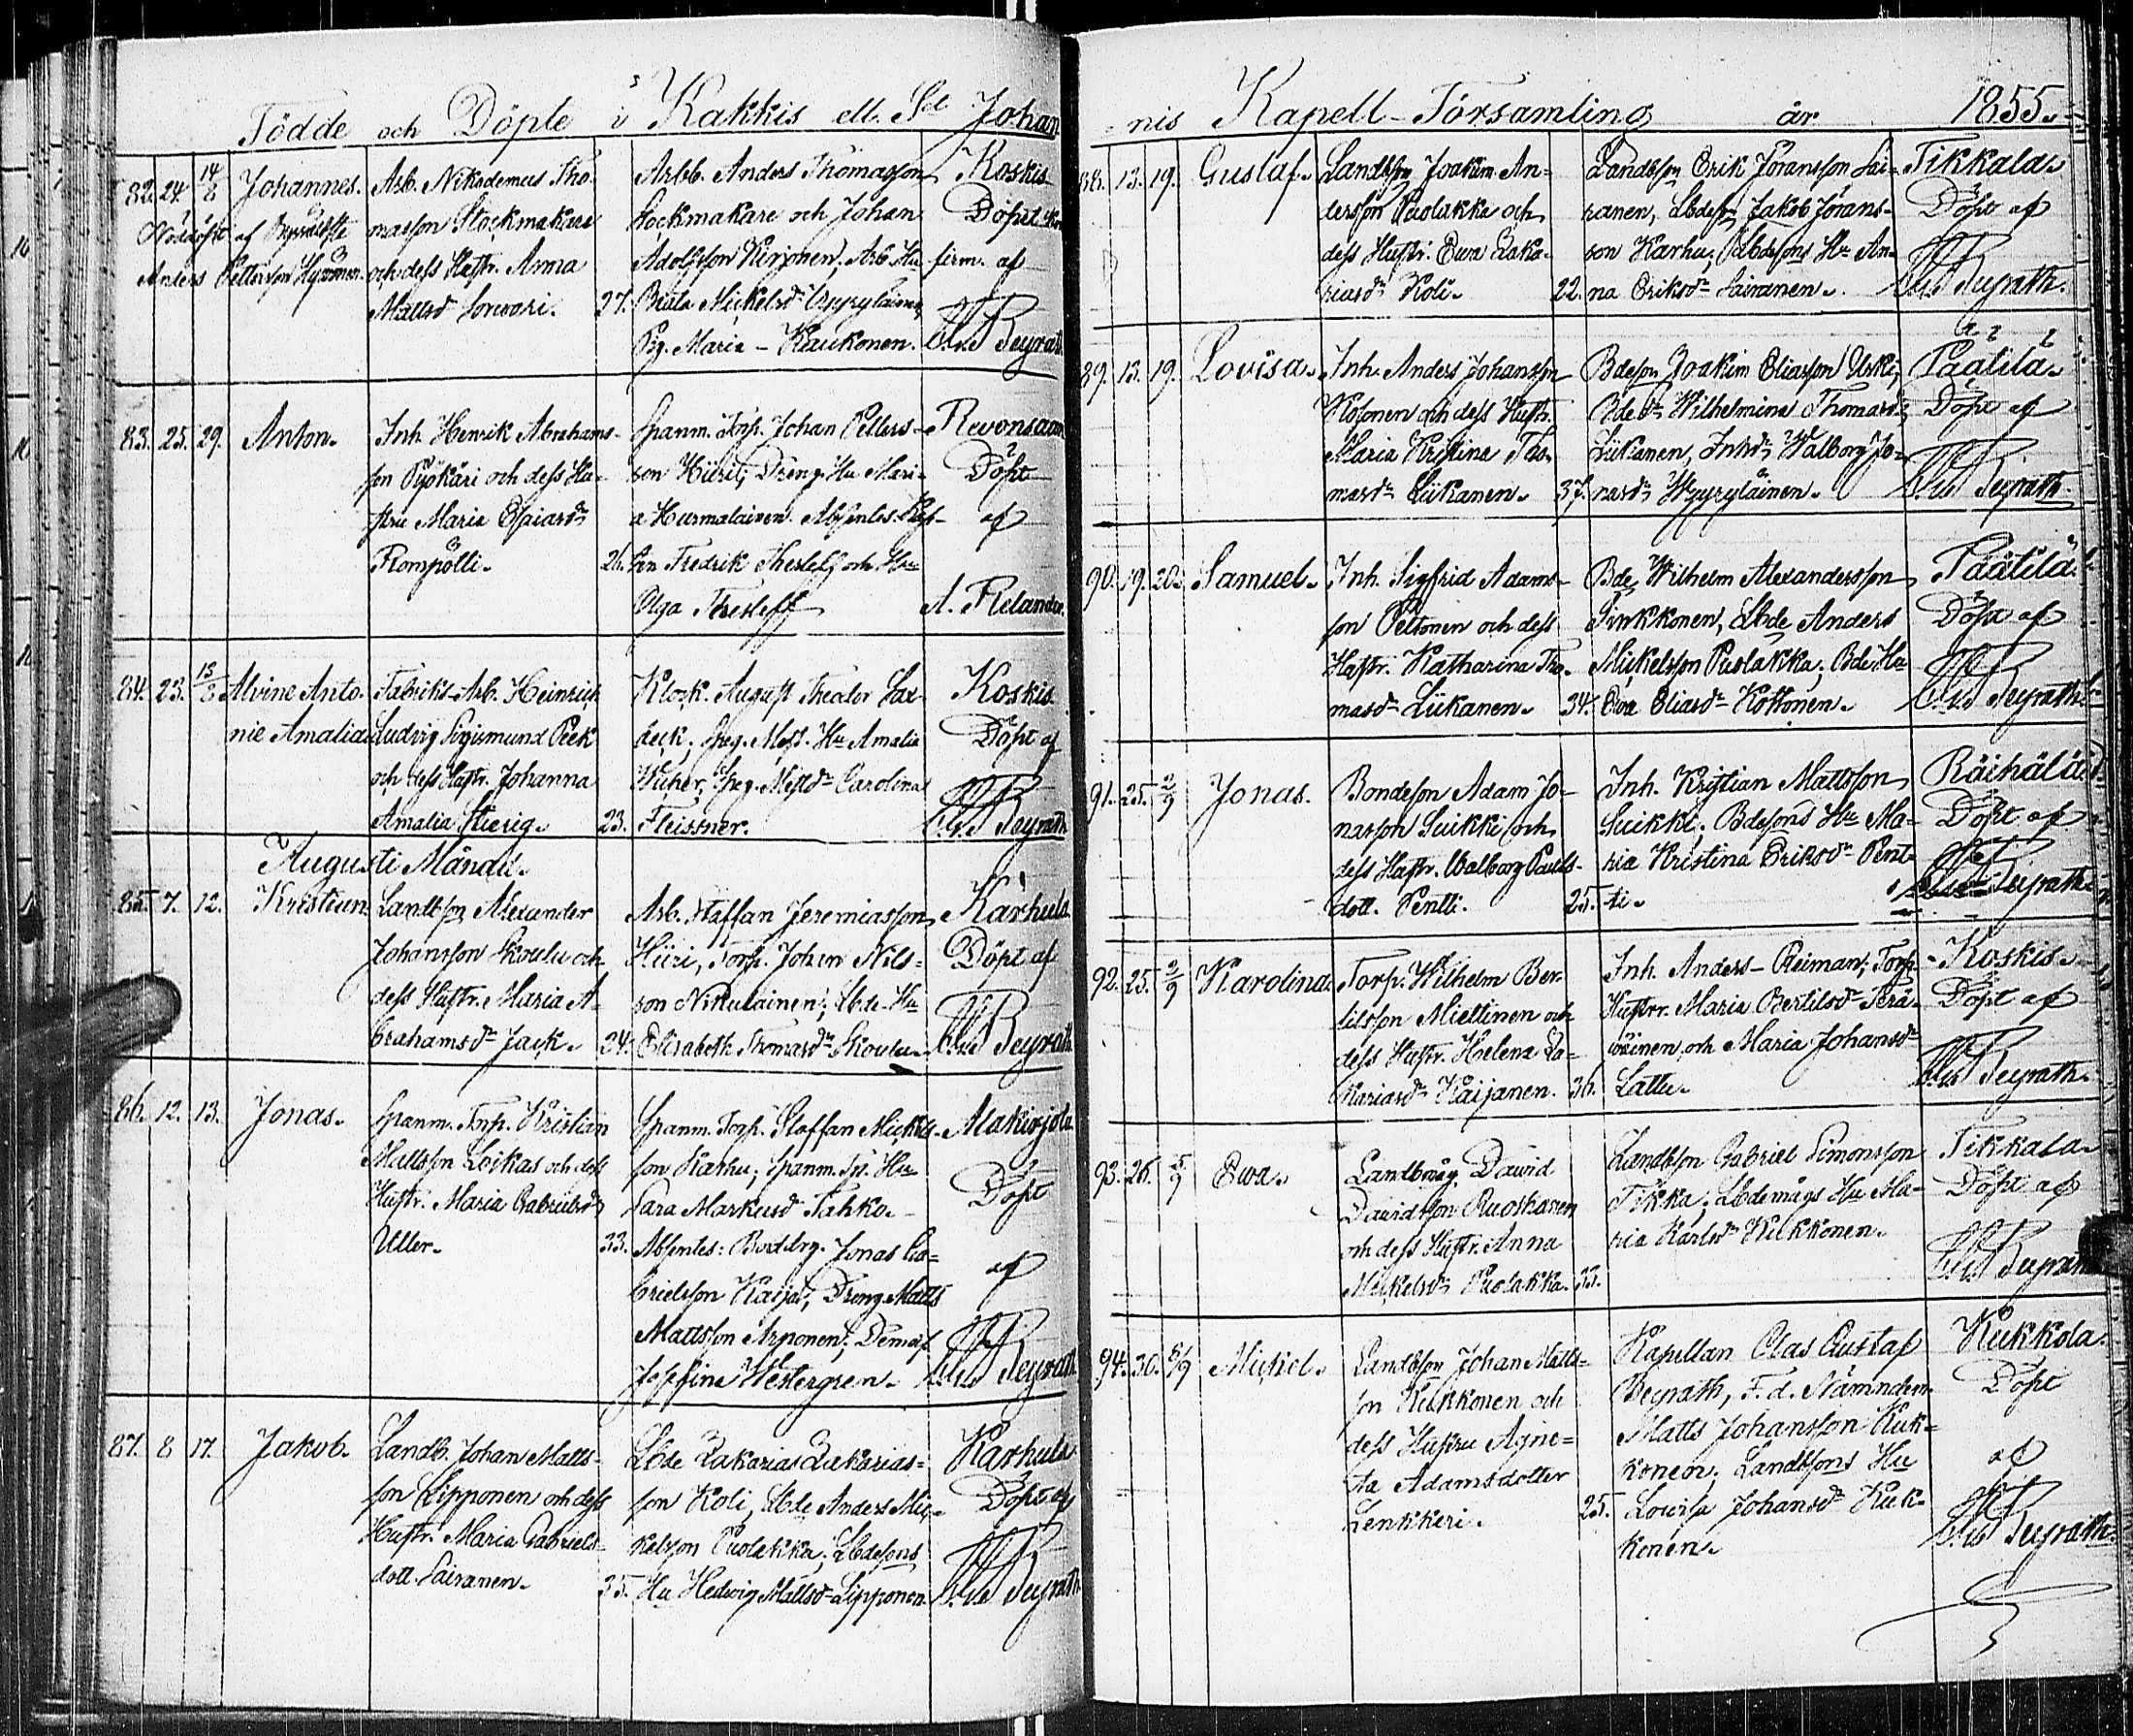 Födde och Döpte i Kakkis ell. S:t Johan
82. 24. 14/8 Johannes.
Nöddöpt af
Anders Pettersson
Arb. Nikodemus Tho-
masson Stockmakare
och dess Hustr. Anna
Mattsd
27.
Arbk. Anders Thomasson
Stockmakare och Johan
Adolfsson Kirjonen; Arb. Hu
Beata Mickelsd
Pig. Maria - Kaukonen.
Koskis
Döpt. kon
firm. af
Beyrath
83. 25. 29. Anton.
Inh. Henrik Abrahams-
son Pyökäri och dess Hu-
stru Maria
Rompölli.
26.
Spanm. Torp. Johan Petters-
son Hiiri; Dreng. Hu Mari-
a Hurmalainen. Absentes.
Fredrik Thesleff och
Olga Thesleff
Revonsaari
Döpt
af
A. Relander.
84. 23. 15/8 Alvine Anto-
nie Amalia
Fabriks-Arb. Heinrich
Ludvig Sigismund Peek
och dess Hustr. Johanna
Amalia Stierig.
23.
Klock. August Theodor
Speg. Mest. Hu Amalia
Speg. Mestd:r Carolina
Fleissner.
Koskis
Döpt af
Beyrath
Augusti Månad.
85. 7. 12. Kristian
Landbson Alexander
Johansson Skoulu och
dess Hustr. Maria A-
brahamsd:r Jack.
24.
Arb. Staffan Jeremiasson
Hiiri, Torp. Johan Nils-
son Nikulainen; Lbde-Hu
Elisabeth Thomasd:r Skoulu
Karhula
Döpt af
Beyrath
86. 12. 13. Jonas.
Spanm. Torp. Kristian
Mattsson Loikas och dess
Hustr. Maria Gabrielsd:r
Uller.
33.
Spanm. Torp. Staffan Mickels-
son Karhu; Spanm. Tp. Hu
Sara Markusd Tahko.
Absentes: Boddrg. Jonas Ga-
brielsson Kaija; Dreng Matts
Mattsson Arponen; Demois.
Josefina Westergren.
Makinjola
Döpt
af
Beyrath
87. 8 17. Jakob.
Landb. Johan Matts-
son Lipponen och dess
Hustr. Maria Gabriels-
dott. Sairanen.
35.
Lbde Zakarias Zakarias-
son Koli, Lbde Anders Mic-
kelsson Puolakka; Lbdesons
Hu Hedwig Mattsd:r Lipponen.
Karhula
Döpt af
Beyrath
-nis Kapell-Församling år 1855.
88. 13. 19. Gustaf.
Landbson Joakim An-
dersson Puolakka och
dess Hustr. Ewa Zaka-
riasd:r Koli.
22.
Landbson Erik Göransson Sai-
ranen, Lbdeson Jakob Görans-
son Karhu; Lbdesons Hu An-
na Eriksd:r Sairanen.
Tikkala.
Döpt af
Beyrath.
89. 13. 19. Lovisa.
Inh. Anders Johansson
Kosonen och dess Hustr.
Maria Kristina Tho-
masd:r Liikanen.
37.
Bdeson Joakim Eliasson Uski;
Bded:r Wilhelmina Thomasd:r
Liikanen, Inhd:r Walborg Jo-
nasd:r Hyyryläinen.
Päätilä.
Döpt af
Beyrath.
90. 19. 20. Samuel.
Inh. Sigfrid Adams-
son Peltonen och dess
Hustr. Katharina Tho-
masd:r Liikanen.
34.
Bde Wilhelm Alexandersson
Sinkkonen, Lbde Anders
Mickelsson Puolakka; Bde Hu
Ewa Eliasd:r Kottonen.
Päätilä.
Döpt af
Beyrath.
91. 25. 2/9 Jonas.
Bondeson Adam Jo-
nasson Suikki och
dess Hustr. Walborg Pauls-
dott. Pentti.
25.
Inh. Kristian Mattsson
Suikki; Bdesons Hu Ma-
ria Kristina Eriksd:r Pent-
ti.
Räihälä.
Döpt af
Beyrath.
92. 25. 2/9 Karolina.
Torp. Wilhelm Ber-
tilsson Miettinen och
dess Hustr. Helena Za-
kariasd:r Kaijanen.
36.
Inh. Anders - Reiman; Torp.
Hustrr. Maria Bertilsd:r Terä-
wäinen och Maria Johansd:r
Lattu.
Koskis.
Döpt af
Beyrath.
93. 26. Ewa.
Landbmåg. David
Davidsson Ruoskanen
och dess Hustr. Anna
Mickelsd:r Puolakka.
33.
Landbson Gabriel Simonsson
Tikka; Lbdemågs Hu Ma-
ria Karlsd:r Kukkonen.
Tikkala.
Döpt af
Beyrath
94. 30. Mickel.
Landbson Johan Matts-
son Kukkonen och
dess Hustru Agne-
ta Adamsdotter
Lenkkeri.
25.
Kapellan Clas Gustaf
Beyrath, F. d. Nämndem.
Matts Johansson Kuk-
konen; Landbsons Hu
Lovisa Johansd:r Kuk-
konen.
Kukkola.
Döpt
af
Beyrath.